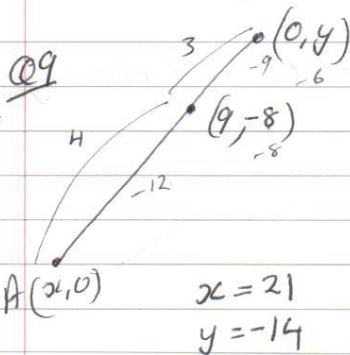 Q9
3
(0,y)
-9
-6
(9,-8)
-8
4
-12
A(x,0)
x = 21
y = -14